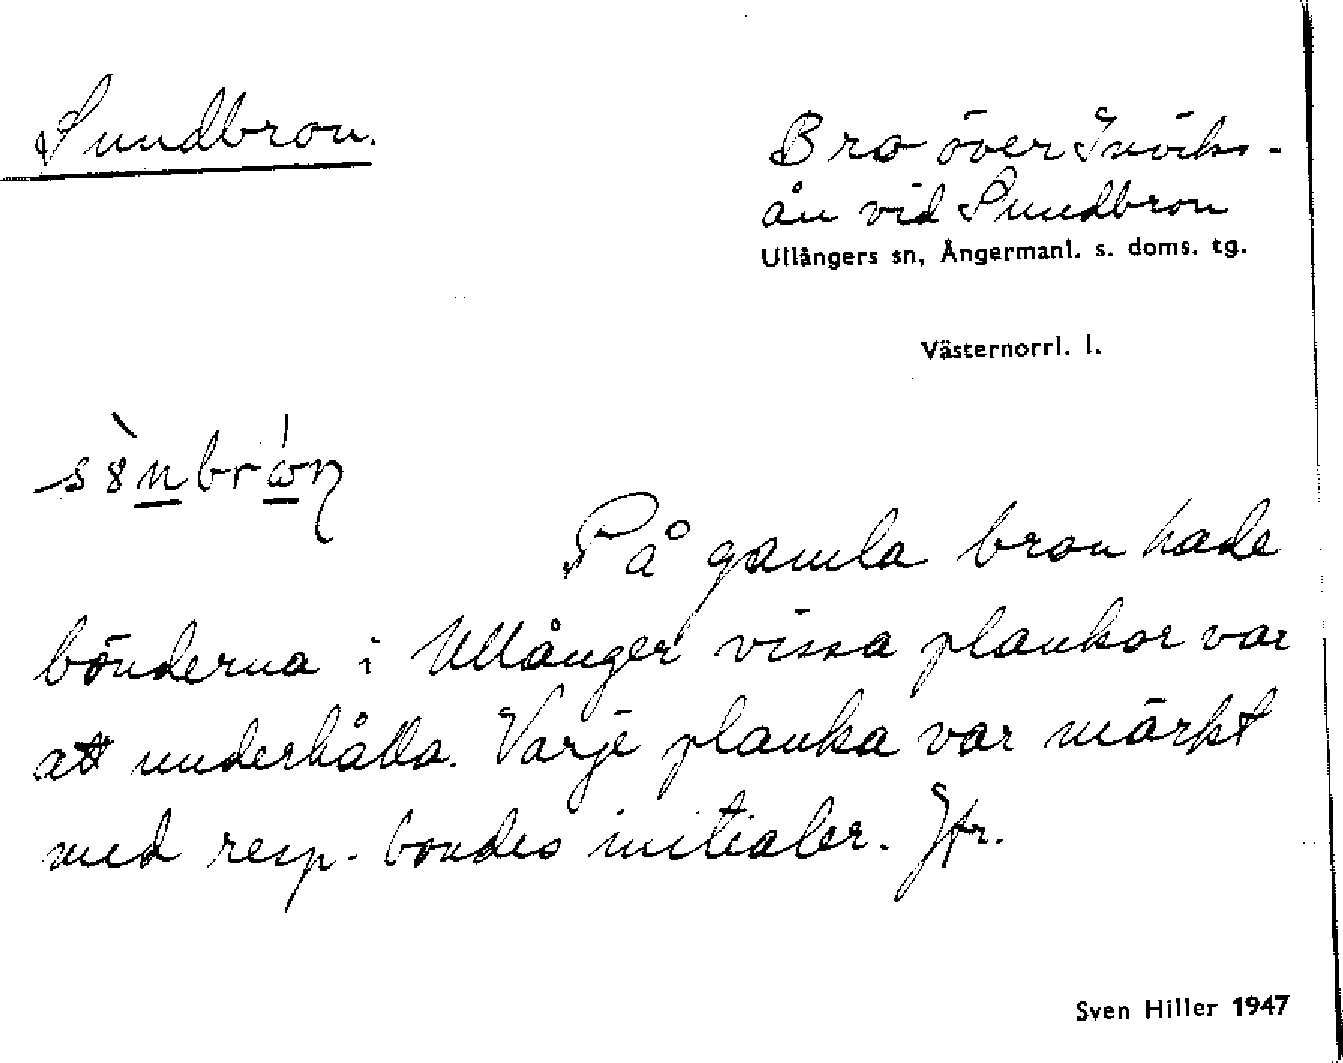 Sundbron.
Bro över Inviks-
ån vid Sundbron
Ullångers sn, Ångermanl. s. doms. tg.
Västernorrl. l.
På gamla bron hade
bönderna i Ullånger vissa plankor var
att underhålla. Varje planka var märkt
med resp. bondes initialer. Jfr.
Sven Hiller 1947